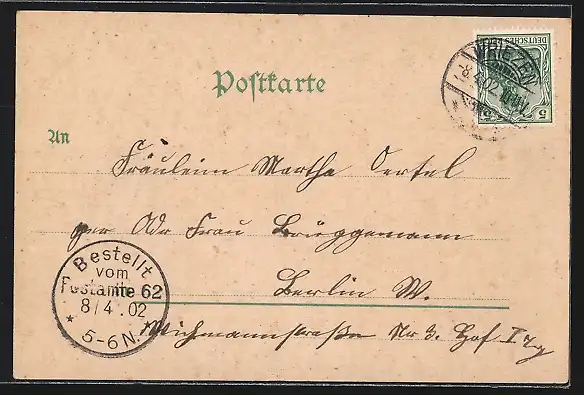 Postkarte
WRIEZEN
8.4.02.
DEUTSCHES
5
An
Fräulein Martha Oertel
per Adr Frau Brüggemann
Berlin W.
Wichmannstraße Nr 3. Hof I
Bestellt
vom
Postamte 62
8/4.02
5-6N.